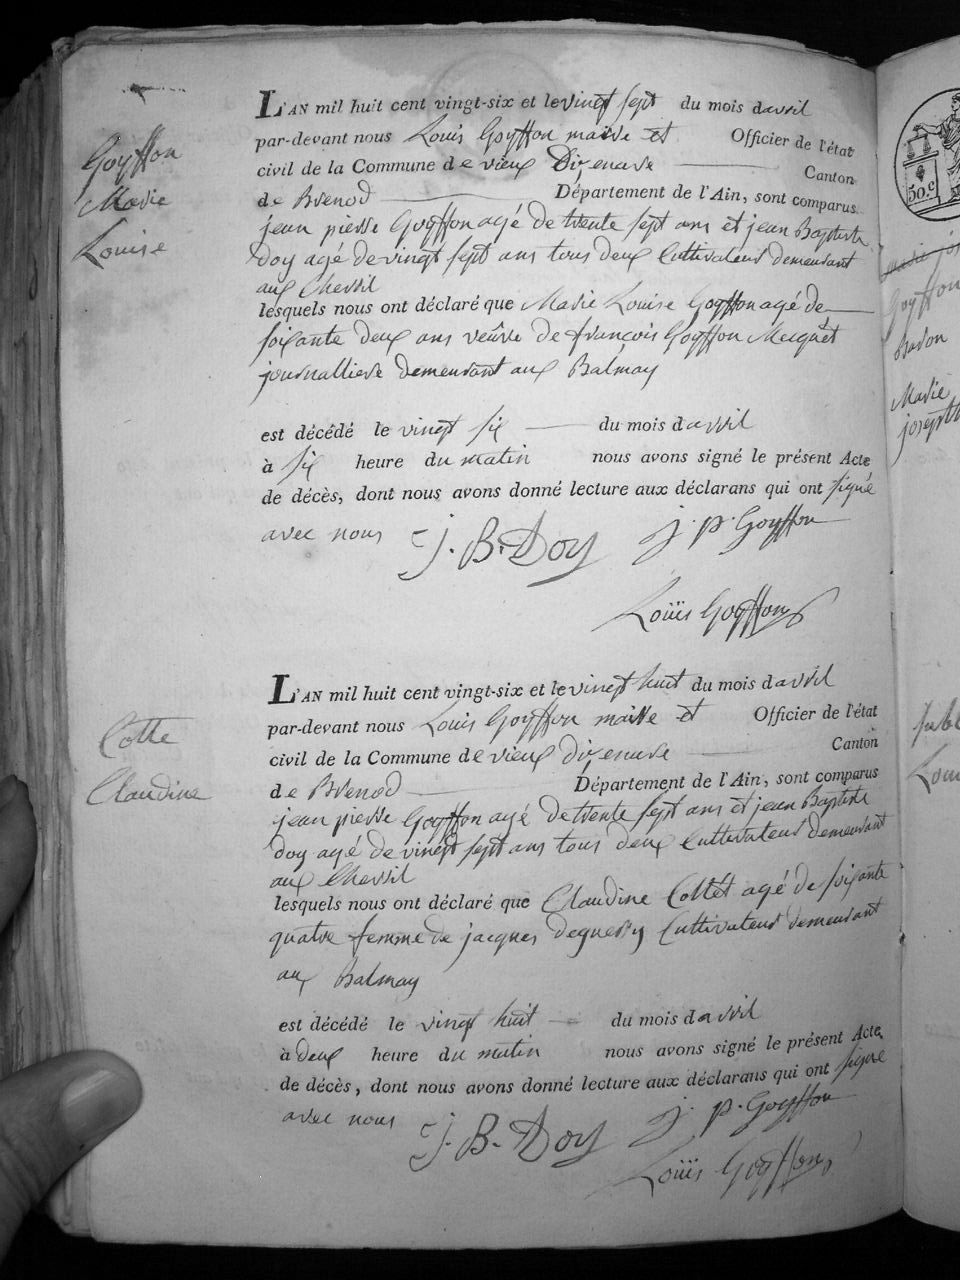 Goyffon
Marie
Louise
L'AN mil huit cent vingt-six et le vingt sept du mois d avril
par-devant nous Louis Goyffon maire et Officier de l'état
civil de la Commune de vieux Dizenave Canton
de Brenod Département de l'Ain, sont comparus
jean pierre Goyffon agé de trente sept ans et jean Baptiste
Doy agé de vingt sept ans tous deux Cultivateur demeurant
aux Chevril
lesquels nous ont déclaré que Marie Louise Goyffon agé de
soixante deux ans veûve de françois Goyffon Mecquet
journalliere demeurant aux Balmay
est décédé le vingt six du mois d avril
à six heure du matin nous avons signé le présent Acte
de décès, dont nous avons donné lecture aux déclarans qui ont signé
avec nous J. B. Doy j. p. Goyffon
Louis Goyffon
Cotte
Claudine
L'AN mil huit cent vingt-six et le vingt huit du mois d avril
par-devant nous Louis Goyffon maire et Officier de l'état
civil de la Commune de vieux dizenave Canton
de Brenod Département de l'Ain, sont comparus
jean pierre Goyffon agé de trente sept ans et jean Baptiste
doy agé de vingt sept ans tous deux Cultivateur demeurant
aux Chevril
lesquels nous ont déclaré que Claudine Cottet agé de soixante
quatre femme de jacques Cultivateur demeurant
aux Balmay
est décédé le vingt huit du mois d avril
à deux heure du matin nous avons signé le présent Acte
de décès, dont nous avons donné lecture aux déclarans qui ont signé
avec nous J. B. Doy j. p. Goyffon
Louis Goyffon
50.c
Goyffon
Baron
Marie